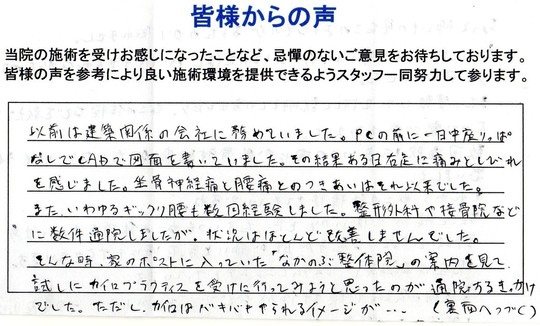 皆様からの声
当院の施術を受けお感じになったことなど、忌憚のないご意見をお待ちしております。
皆様の声を参考により良い施術環境を提供できるようスタッフ一同努力して参ります。
以前は建築関係の会社に務めていました。PCの前に一日中座りっぱ
なしでCADで図面を書いていました。その結果ある日右足に痛みとしびれ
を感じました。坐骨神経痛と腰痛とのつきあいはそれ以来でした。
また、いわゆるギックリ腰も数回経験しました。整形外科や接骨院など
に数件通院しましたが、状況はほとんど改善しませんでした。
そんな時、家のポストに入っていた「なかのぶ整体院」の案内を見て
試しにカイロプラクティスを受けに行ってみようと思ったのが通院するきっかけ
でした。ただし、カイロはバキバキやられるイメージが… (裏面へつづく)